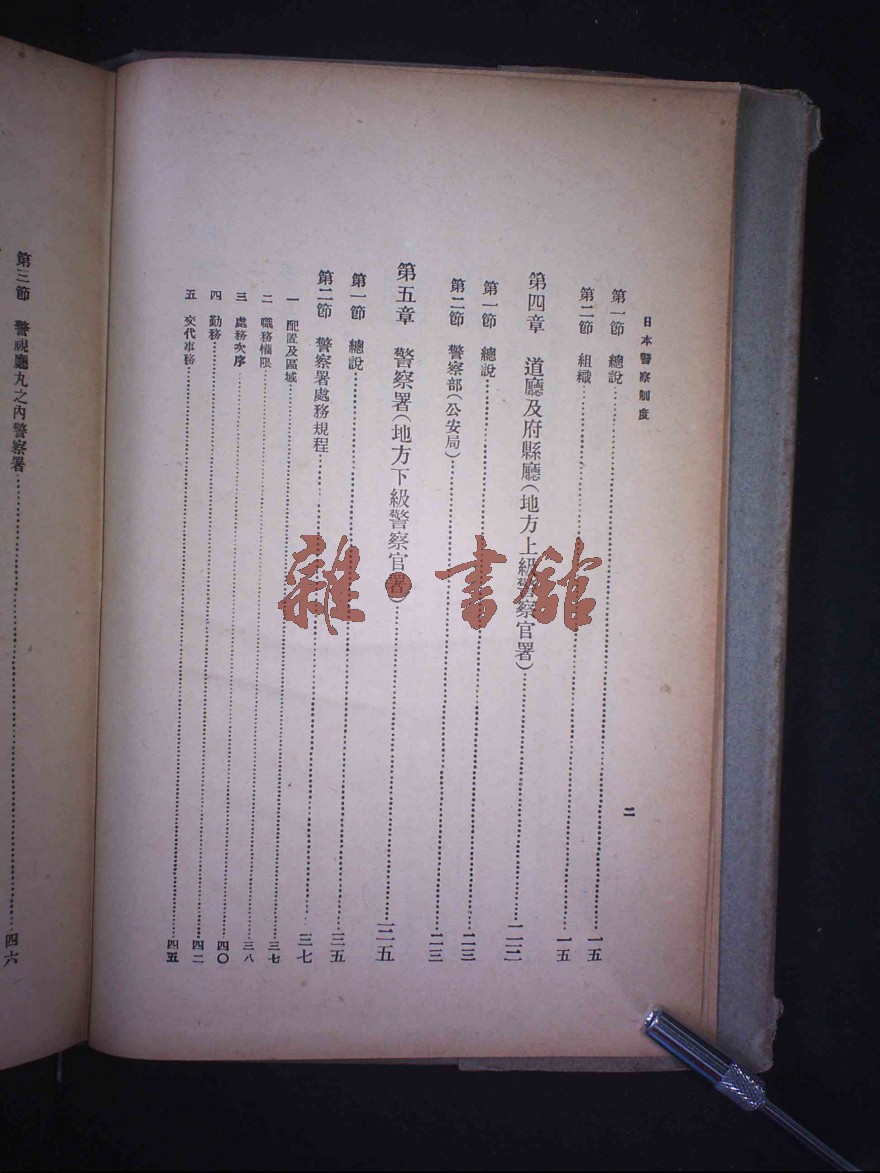 日本警察制度
二
第一節 總說……一五
第二節 組織……一五
第四章 道廳及府縣廳(地方上級警察官署)……二三
第一節 總說……二三
第二節 警察部(公安局)……二三
第五章 警察署(地方下級警察官署)……三五
第一節 總說……三五
第二節 警察署處務規程……三七
一 配置及區域……三七
二 職務權限……三八
三 處務次序……四〇
四 勤務……四二
五 交代事務……四五
第三節 警視廳丸之內警察署……四六
雜書館